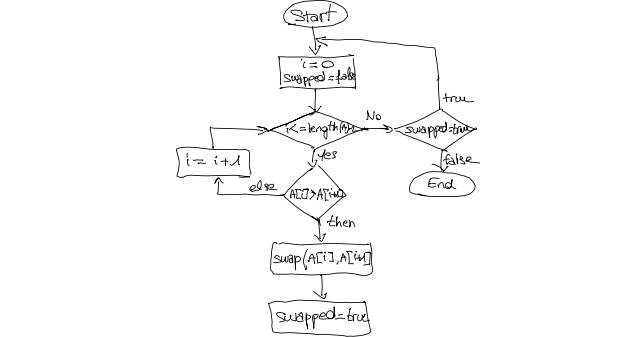 Start
i=0
swapped=false
i<=length(A)
No
swapped=true
true
false
End
yes
i= i+1
else
A[i]>A[i+1]
then
swap(A[i],A[i+1]
swapped=true